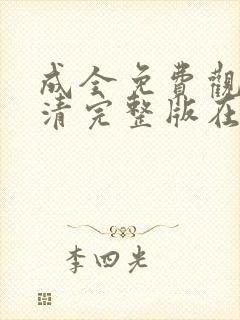 成全免費觀
清完整版在
李四光